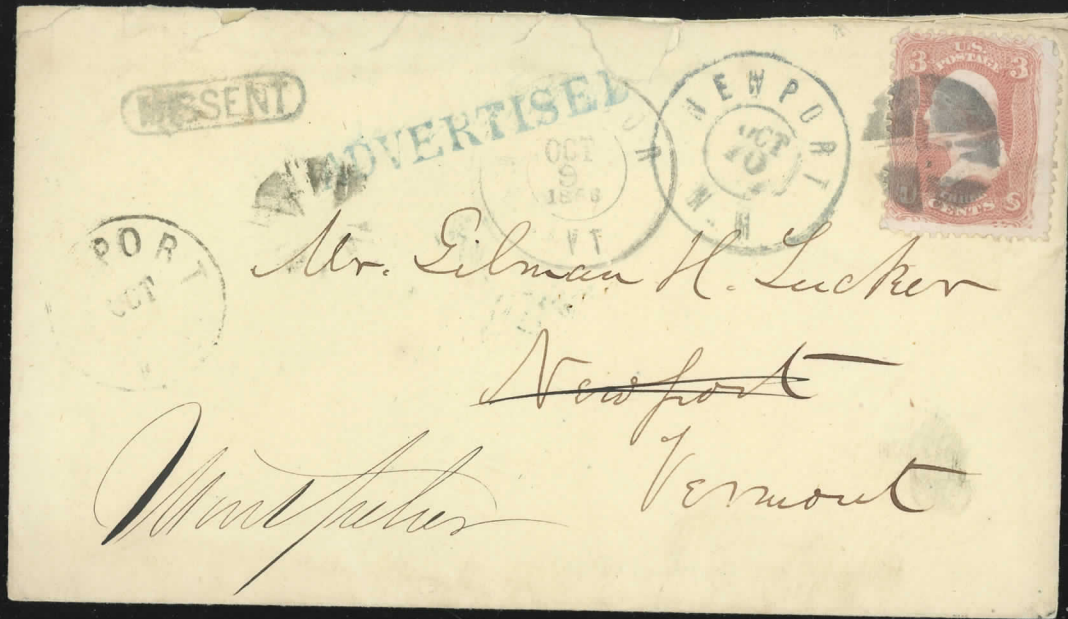 MISSENT
ADVERTISED
OCT
9
1868
VT
NEWPORT
OCT
10
N.H
U.S.
POSTAGE
3 3
CENTS
PORT
OCT
Mr. Gilman H. Tucker
Newport
Vermont
Montpelier